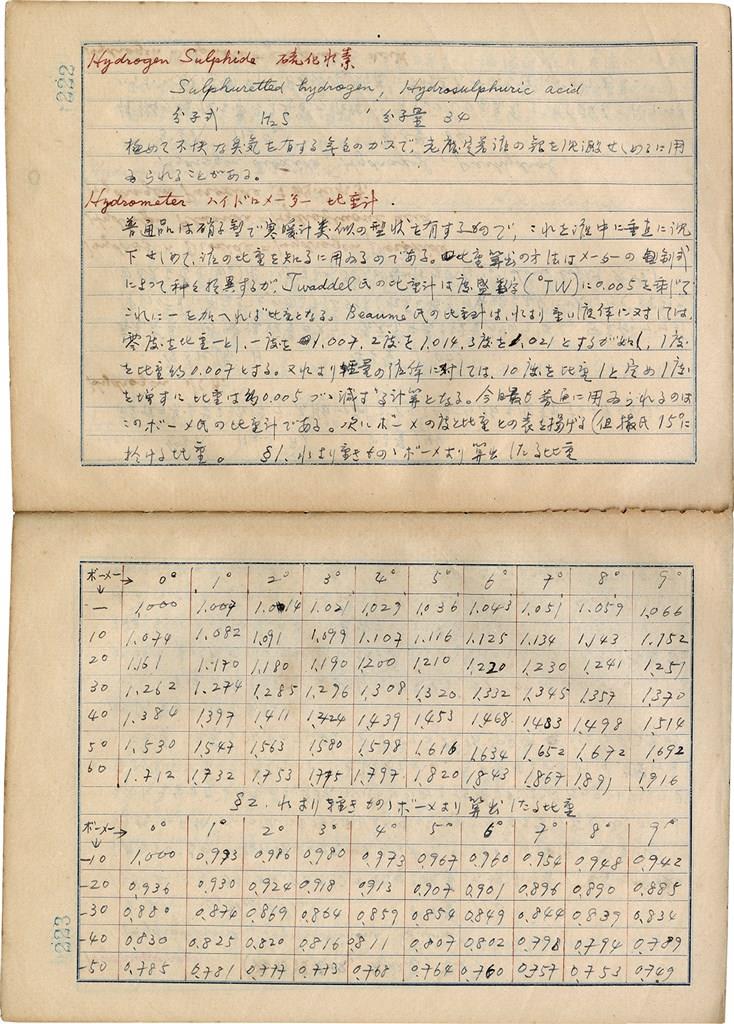 222
Hydrogen Sulphide 硫化水素
Sulphuretted hydrogen, Hydrosulphuric acid
分子式 H₂S 分子量 34
極めて不快な臭気を有する無色のガスで、老廃定着液の銀を沈澱せしめるに用
ゐられることがある。
Hydrometer ハイドロメーター 比重計.
普通品は硝子製で寒暖計類似の型状を有するもので、これを液中に垂直に沈
下せしめて、液の比重を知るに用ゐるのである。比重算出の方法はメーターの目割式
によって種々相異するが、Twaddel氏の比重計は度盛数字(°TW)に0.005を乗じて
これに一を加へれば比重となる。Beaumé氏の比重計は、水より重い液体に対しては、
零度を比重一とし、一度を1.007, 2度を1.014, 3度を1.021とするが如し, 1度
を比重約0.007とする。又水より軽量の液体に対しては、10度を比重1と定め1度
を増すに比重は約0.005づゝ減ずる計算となる。今日最も普通に用ゐられるのは
このボーメ氏の比重計である。次にボーメの度と比重との表を掲げる(但摂氏15°に
於ける比重。 §1. 水より重きものゝボーメより算出したる比重
ボーメー→ 0° 1° 2° 3° 4° 5° 6° 7° 8° 9°
— 1.000 1.007 1.014 1.021 1.029 1.036 1.043 1.051 1.059 1.066
10 1.074 1.082 1.091 1.099 1.107 1.116 1.125 1.134 1.143 1.152
20 1.161 1.170 1.180 1.190 1.200 1.210 1.220 1.230 1.241 1.251
30 1.262 1.274 1.285 1.296 1.308 1.320 1.332 1.345 1.357 1.370
40 1.384 1.397 1.411 1.424 1.439 1.453 1.468 1.483 1.498 1.514
50 1.530 1.547 1.563 1.580 1.598 1.616 1.634 1.652 1.672 1.692
60 1.712 1.732 1.753 1.775 1.797 1.820 1.843 1.867 1.891 1.916
§2. 水より軽きものゝボーメより算出したる比重
ボーメー→ 0° 1° 2° 3° 4° 5° 6° 7° 8° 9°
-10 1.000 0.993 0.986 0.980 0.973 0.967 0.960 0.954 0.948 0.942
-20 0.936 0.930 0.924 0.918 0.913 0.907 0.901 0.896 0.890 0.885
-30 0.880 0.874 0.869 0.864 0.859 0.854 0.849 0.844 0.839 0.834
-40 0.830 0.825 0.820 0.816 0.811 0.807 0.802 0.798 0.794 0.789
-50 0.785 0.781 0.777 0.773 0.768 0.764 0.760 0.757 0.753 0.749
223